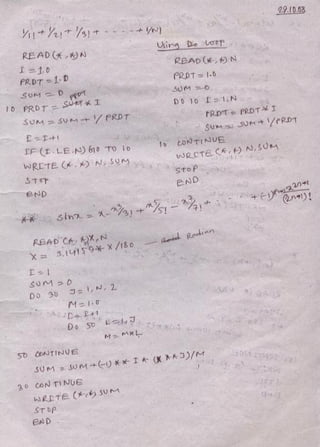 29.10.03
1/1! + 1/2! + 1/3! + - - - - + 1/N!
READ(*,*)N
I = 1.0
PRDT = 1.0
SUM = 0
10 PRDT = PRDT * I
SUM = SUM + 1/PRDT
I = I+1
IF (I.LE.N) GO TO 10
WRITE (*,*) N, SUM
STOP
END
Using Do loop
READ(*,*)N
PRDT = 1.0
SUM = 0
DO 10 I = 1,N
PRDT = PRDT * I
SUM = SUM + 1/PRDT
10 CONTINUE
WRITE (*,*) N, SUM
STOP
END
** Sinx = x - x³/3! + x⁵/5! - x⁷/7! + - - - + (-1)ⁿ x²ⁿ⁺¹/(2n+1)!
READ (*,*)X,N
X = 3.14159 * X/180 — Radian
I = 1
SUM = 0
DO 30 J = 1, N, 2
M = 1.0
I = I+1
DO 50 K = 1, J
M = M*K
50 CONTINUE
SUM = SUM + (-1) ** I * (X ** J)/M
30 CONTINUE
WRITE (*,*) SUM
STOP
END